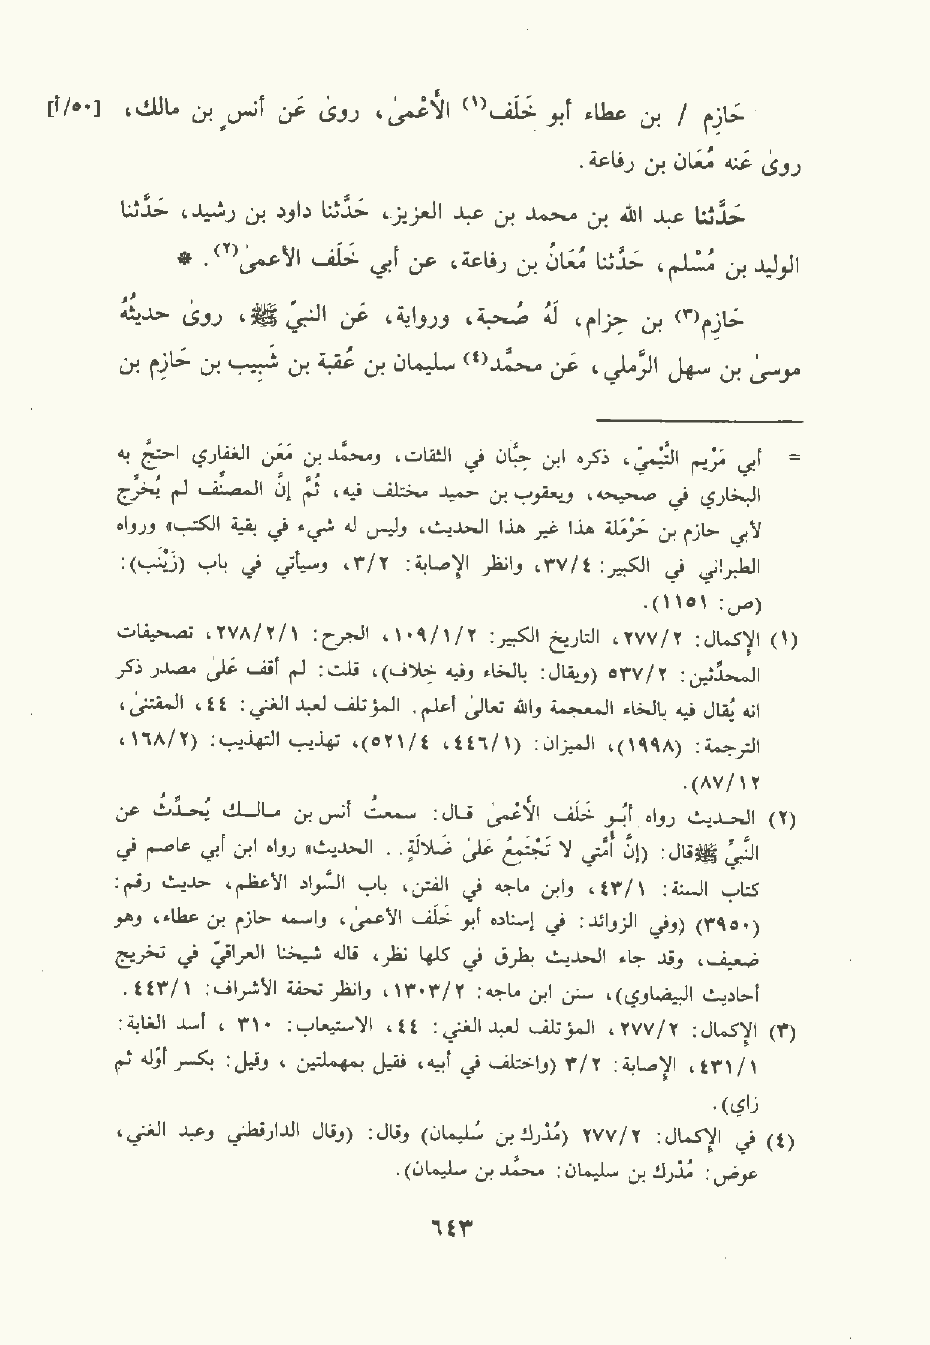 حَازِم / بن عطاء أبو خَلَف(١) الأَعْمىٰ، روىٰ عَن أنس بن مالك، [٥٠/أ]
روىٰ عَنه مُعَان بن رفاعة.
حَدَّثنا عبد الله بن محمد بن عبد العزيز، حَدَّثنا داود بن رشيد، حَدَّثنا
الوليد بن مُسْلم، حَدَّثنا مُعَانُ بن رفاعة، عن أبي خَلَف الأعمىٰ(٢). *
حَازِم(٣) بن حِزام، لَهُ صُحبة، ورواية، عَن النبيّ ﷺ، روىٰ حديثَهُ
موسىٰ بن سهل الرَّملي، عَن محمَّد(٤) سليمان بن عُقبة بن شَبِيب بن حَازِم بن
= أبي مَرْيم التَّيْميّ، ذكره ابن حِبَّان في الثقات، ومحمَّد بن مَعْن الغفاري احتجَّ به
البخاري في صحيحه، ويعقوب بن حميد مختلف فيه، ثُمَّ إنَّ المصنِّف لم يُخرِّج
لأبي حازم بن حَرْمَلة هذا غير هذا الحديث، وليس له شيء في بقية الكتب» ورواه
الطبراني في الكبير: ٣٧/٤، وانظر الإصابة: ٣/٢، وسيأتي في باب (زَيْنَب):
(ص: ١١٥١).
(١) الإكمال: ٢٧٧/٢، التاريخ الكبير: ١٠٩/١/٢، الجرح: ٢٧٨/٢/١، تصحيفات
المحدِّثين: ٥٣٧/٢ (ويقال: بالخاء وفيه خِلاف)، قلت: لم أقف علىٰ مصدر ذكر
انه يُقال فيه بالخاء المعجمة والله تعالىٰ أعلم. المؤتلف لعبد الغني: ٤٤، المقتنىٰ،
الترجمة: (١٩٩٨)، الميزان: (٤٤٦/١، ٥٢١/٤)، تهذيب التهذيب: (١٦٨/٢،
٨٧/١٢).
(٢) الحديث رواه أبُو خَلَف الأَعْمىٰ قال: سمعتُ أنس بن مالك يُحدِّثُ عن
النَّبيِّ ﷺقال: (إنَّ أمَّتي لا تَجْتَمعُ علىٰ ضَلالَةٍ. . الحديث» رواه ابن أبي عاصم في
كتاب السنة: ٤٣/١، وابن ماجه في الفتن، باب السَّواد الأعظم، حديث رقم:
(٣٩٥٠) (وفي الزوائد: في إسناده أبو خَلَف الأعمىٰ، واسمه حازم بن عطاء، وهو
ضعيف، وقد جاء الحديث بطرق في كلها نظر، قاله شيخنا العراقيّ في تخريج
أحاديث البيضاوي)، سنن ابن ماجه: ١٣٠٣/٢، وانظر تحفة الأشراف: ٤٤٣/١.
(٣) الإكمال: ٢٧٧/٢، المؤتلف لعبد الغني: ٤٤، الاستيعاب: ٣١٠، أسد الغابة:
٤٣١/١، الإصابة: ٣/٢ (واختلف في أبيه، فقيل بمهملتين، وقيل: بكسر أوّله ثم
زاي).
(٤) في الإكمال: ٢٧٧/٢ (مُدْرك بن سُليمان) وقال: (وقال الدارقطني وعبد الغني،
عوض: مُدْرك بن سليمان: محمَّد بن سليمان).
٦٤٣